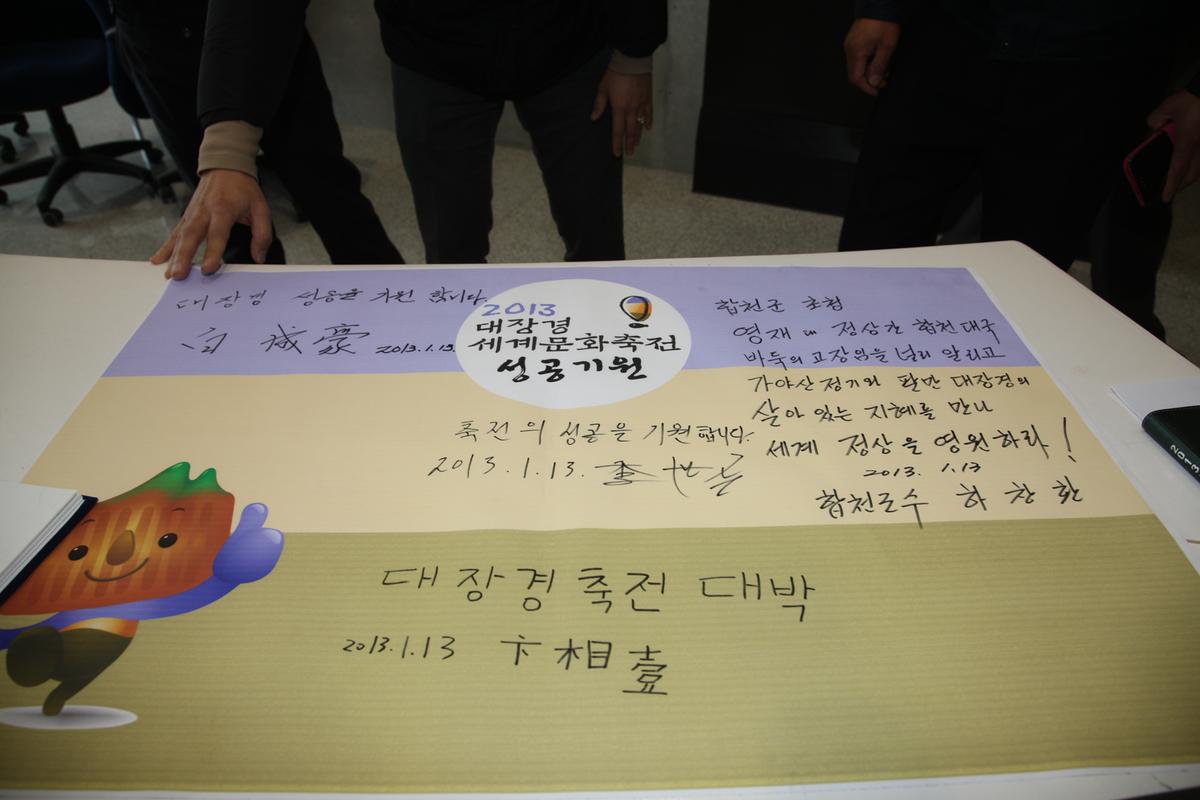 대장경 성공을 기원 합니다.
白成豪 2013.1.13.
2013
대장경
세계문화축전
성공기원
합천군 초청
영재 대 정상간 합천 대국
바둑의 고장임을 널리 알리고
가야산 정기와 팔만 대장경의
살아 있는 지혜를 만나
세계 정상을 영원하라!
2013. 1.13
합천군수 하창환
축전의 성공을 기원합니다.
2013.1.13. 李世乭
대장경축전 대박
2013.1.13 卞相壹
2013